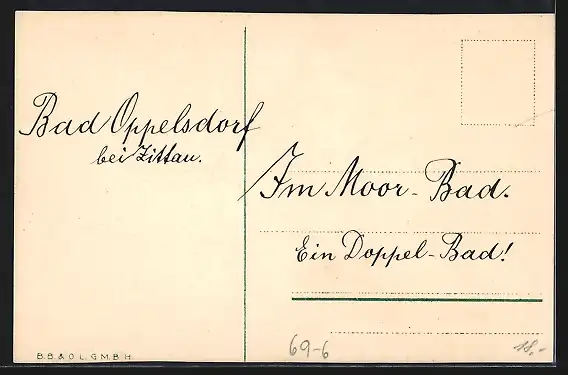 Bad Oppelsdorf
bei Zittau.
Im Moor-Bad.
Ein Doppel-Bad!
B.B.& O.L.G.M.B.H.
69-6
18,-